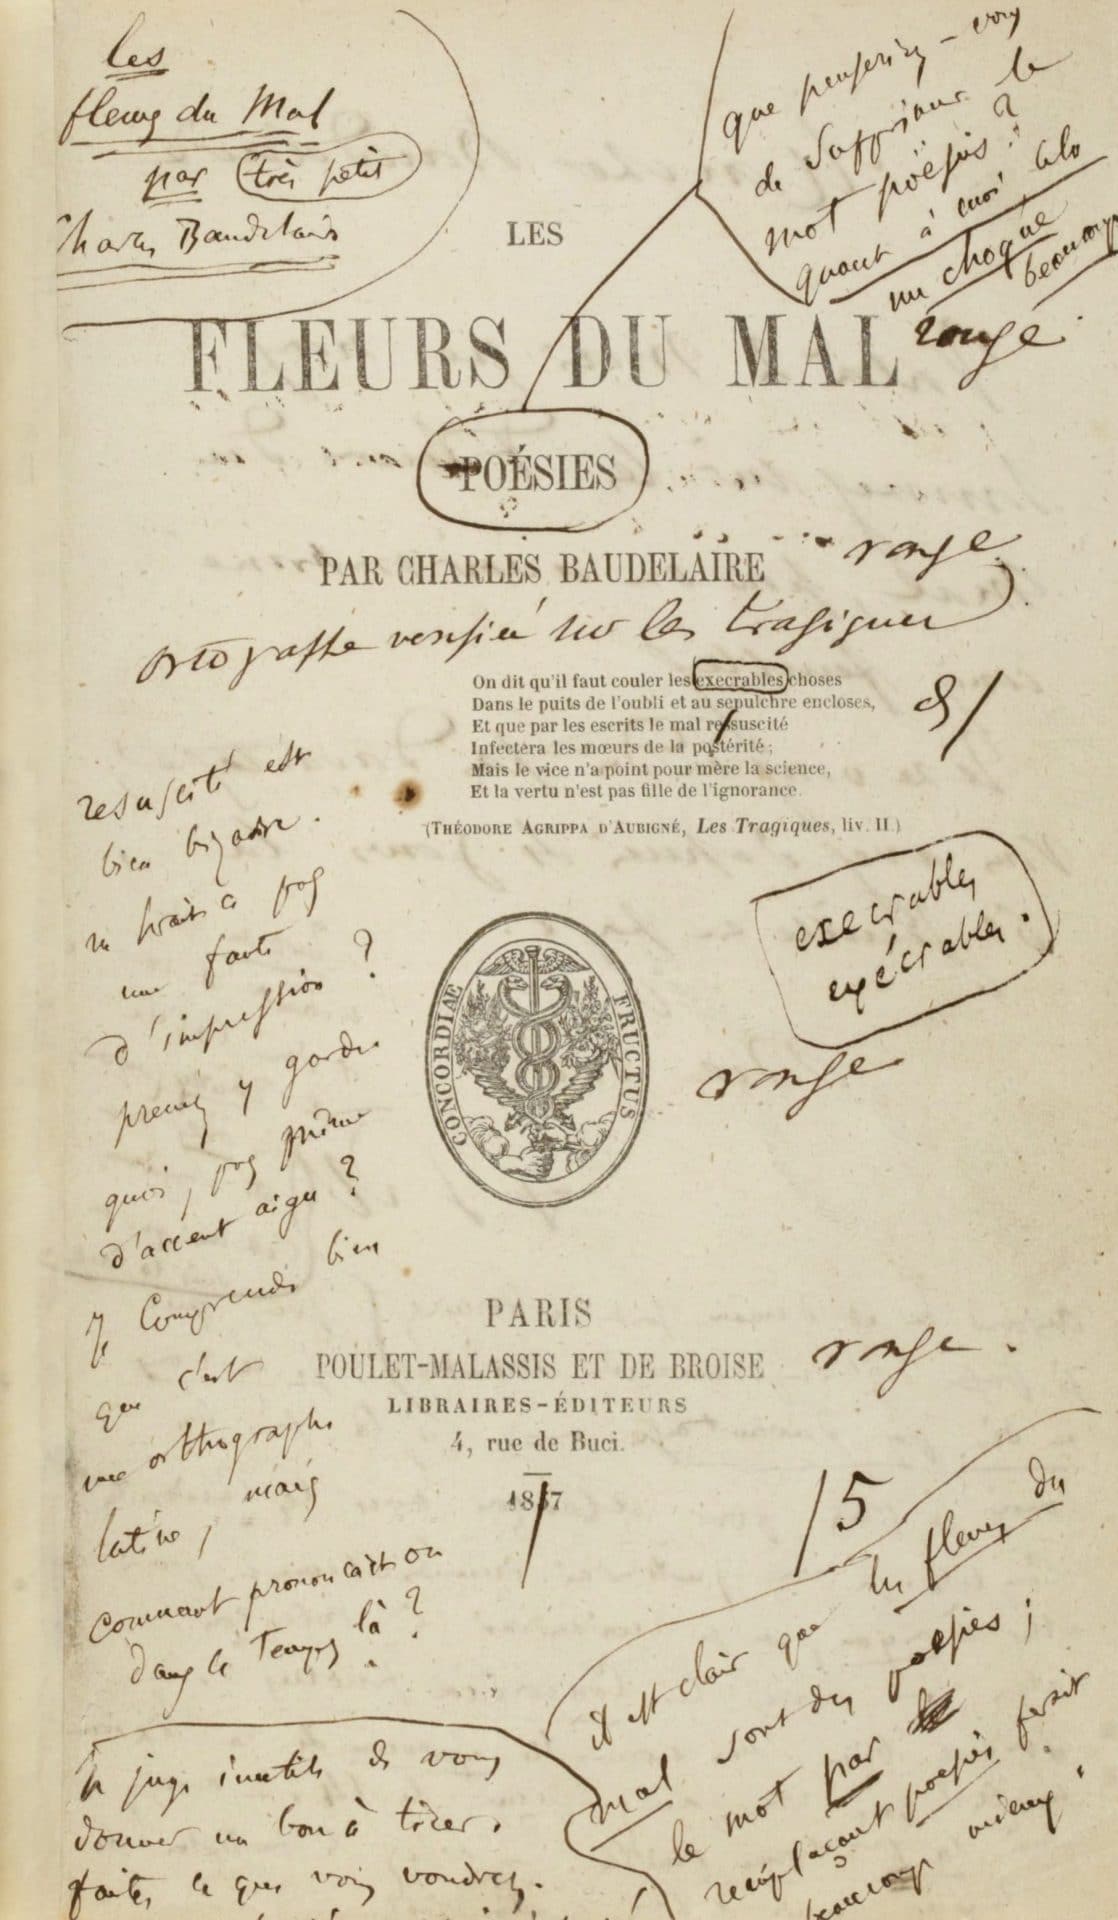 les
fleurs du Mal
par très petit
Charles Baudelaire
que penseriez-vous
de supprimer le
mot poësies ?
quant à moi cela
me choque
beaucoup
rouge
LES
FLEURS DU MAL
POÉSIES
PAR CHARLES BAUDELAIRE
rouge
ortografhe vérifiée sur les Tragiques
On dit qu'il faut couler les execrables choses
Dans le puits de l'oubli et au sepulchre encloses,
Et que par les escrits le mal ressuscité
Infectera les mœurs de la postérité ;
Mais le vice n'a point pour mère la science,
Et la vertu n'est pas fille de l'ignorance.
(THÉODORE AGRIPPA D'AUBIGNÉ, Les Tragiques, liv. II.)
resuscité est
bien bizarre.
ne serait-ce pas
une faute
d'impression ?
prenez y garde
quoi, pas même
d'accent aigu ?
je comprends bien
que c'est
une orthographe
latine, mais
comment prononçait on
dans le temps là ?
execrables
exécrables.
rouge
CONCORDIAE
FRUCTUS
PARIS
POULET-MALASSIS ET DE BROISE
rouge.
LIBRAIRES-ÉDITEURS
4, rue de Buci.
1857
/5
il est clair que les fleurs du
mal sont des poësies ;
le mot par
remplaçant poësies ferait
beaucoup mieux.
Je juge inutile de vous
donner un bon à tirer.
faites ce que vous voudrez.